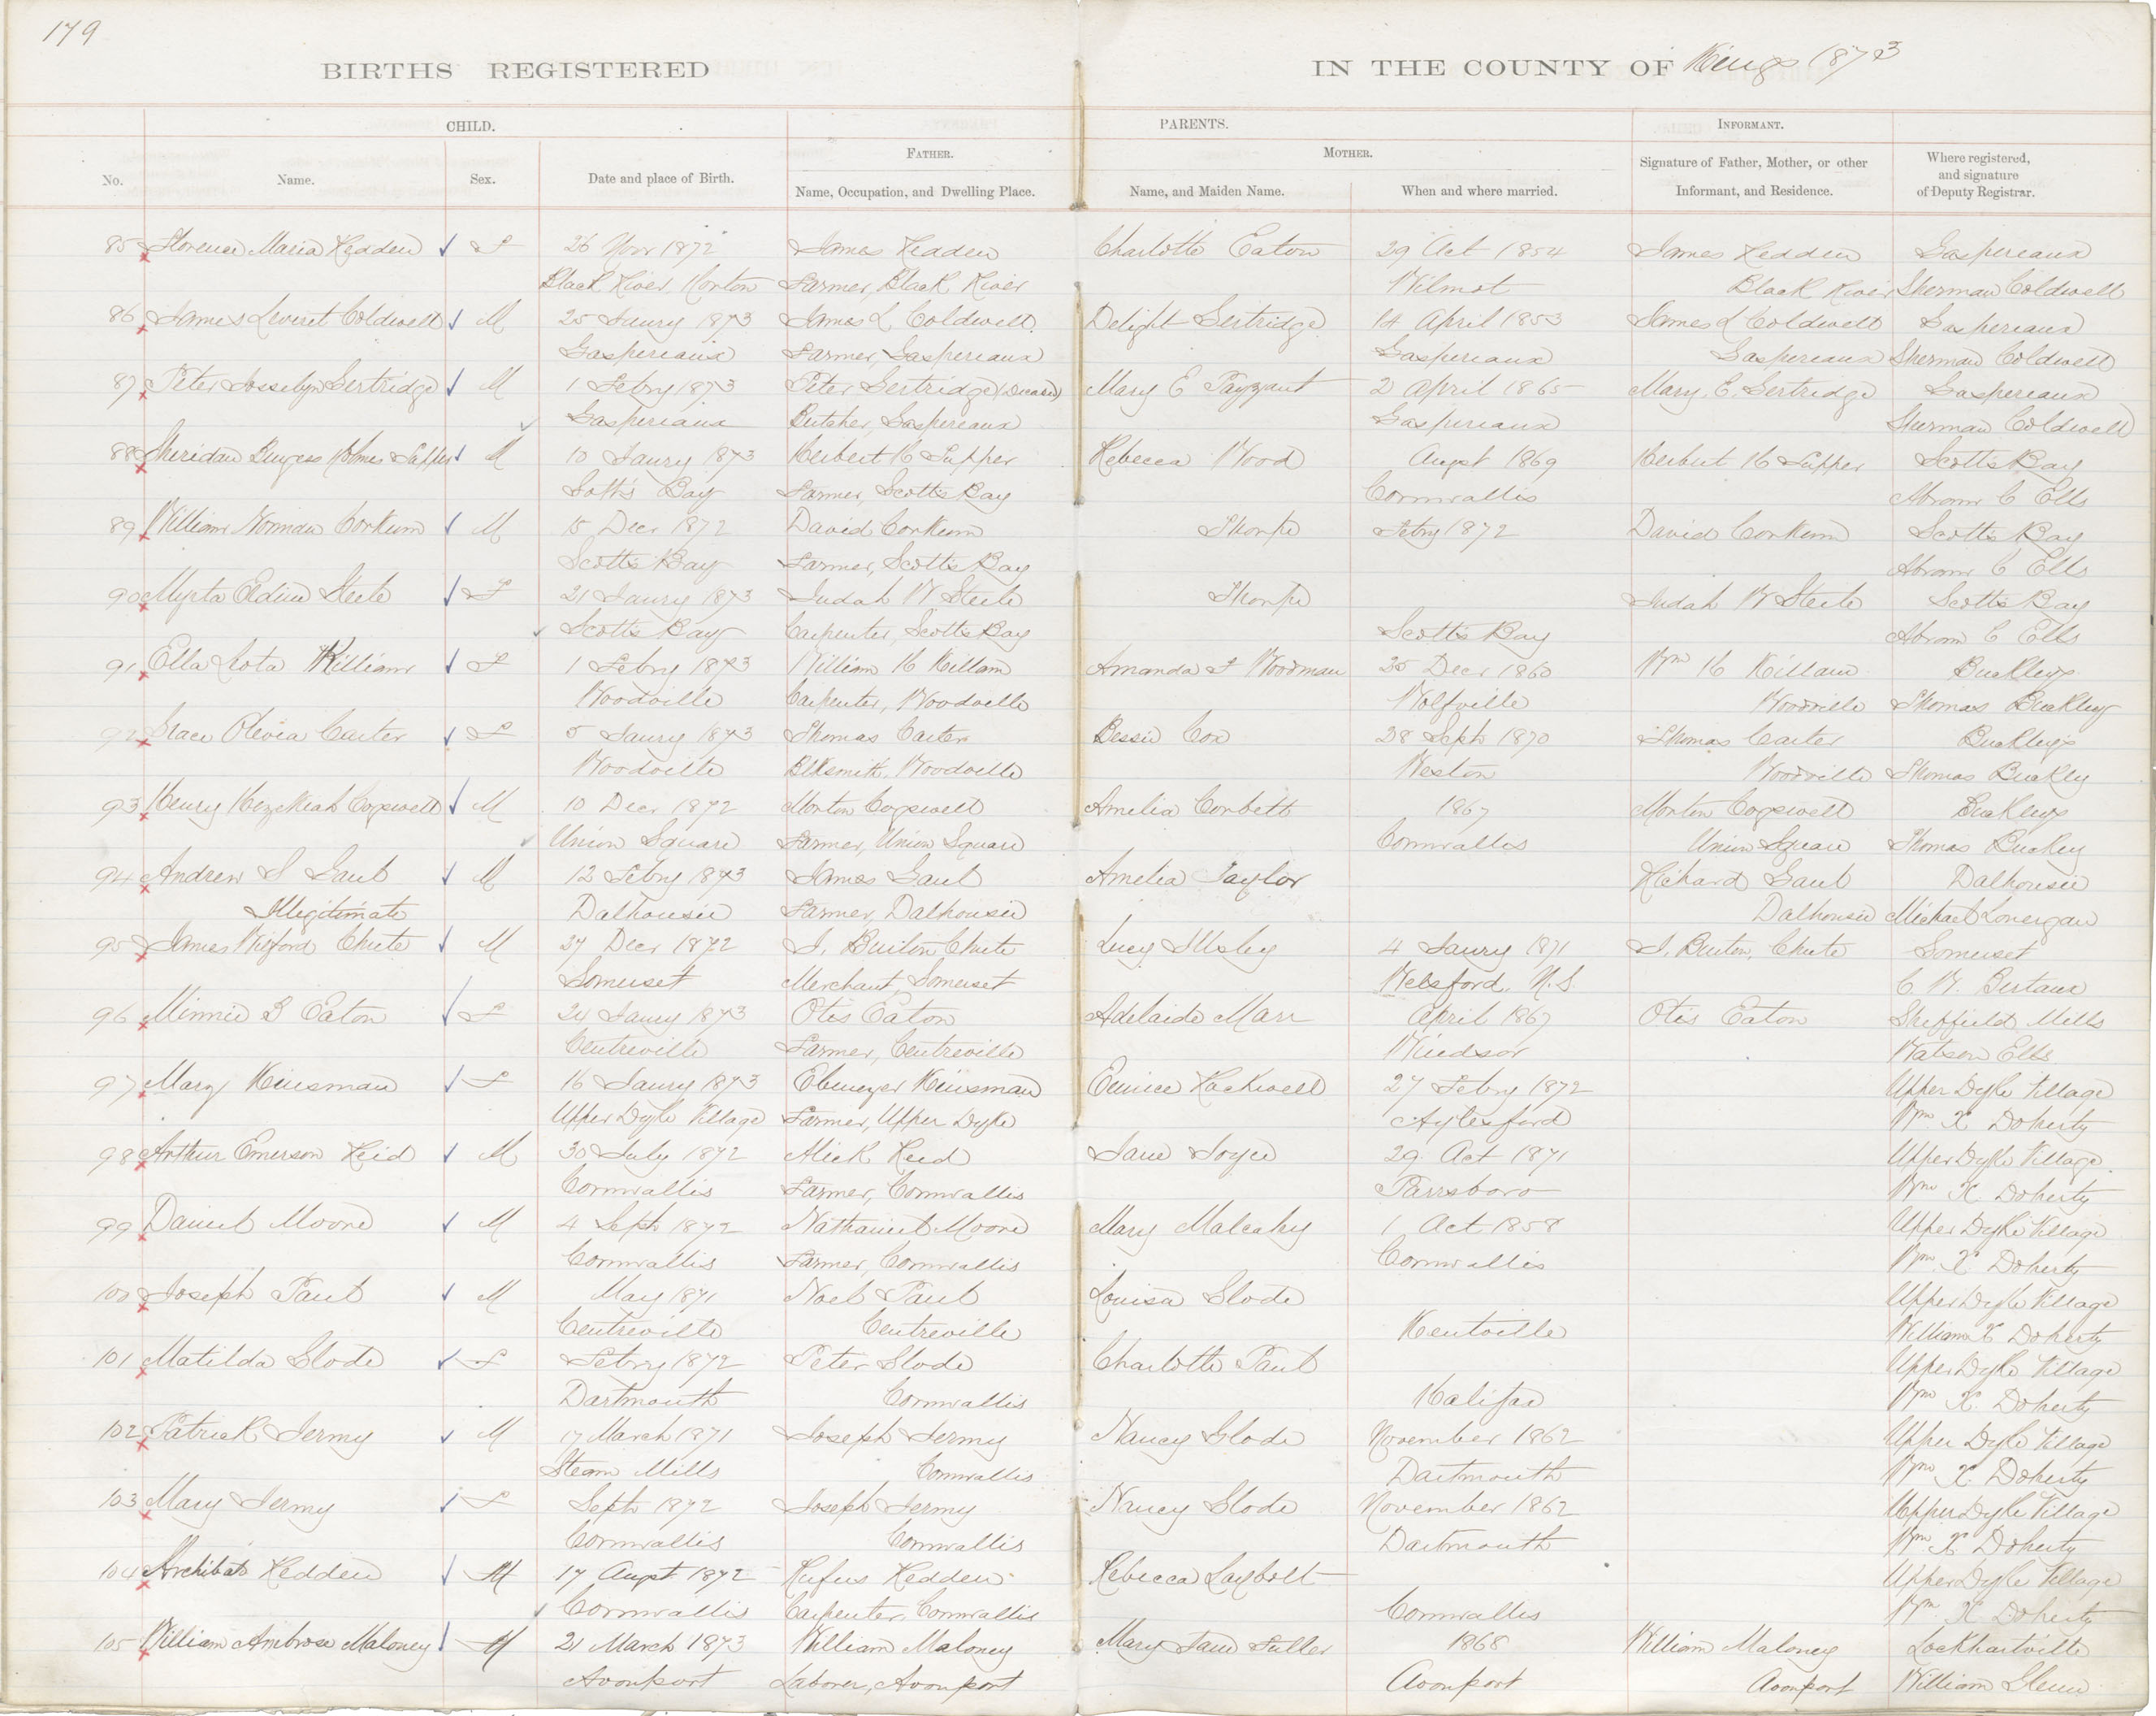 179
BIRTHS REGISTERED IN THE COUNTY OF Kings 1873
CHILD. PARENTS. INFORMANT.
FATHER. MOTHER.
No. Name. Sex. Date and place of Birth. Name, Occupation, and Dwelling Place. Name, and Maiden Name. When and where married. Signature of Father, Mother, or other Informant, and Residence. Where registered, and signature of Deputy Registrar.
85 Florence Maria Redden F 26 Novr 1872 James Redden Charlotte Eaton 29 Oct 1854 James Redden Gaspereaux
Black River Horton Farmer, Black River Wilmot Black River Sherman Coldwell
86 James Leviret Coldwell M 25 Janry 1873 James L Coldwell Delight Gertridge 14 April 1853 James L Coldwell Gaspereaux
Gaspereaux Farmer, Gaspereaux Gaspereaux Gaspereaux Sherman Coldwell
87 Peter Josselyn Gertridge M 1 Febry 1873 Peter Gertridge (Deceased) Mary E Payzant 2 April 1865 Mary E. Gertridge Gaspereaux
Gaspereaux Butcher, Gaspereaux Gaspereaux Sherman Coldwell
88 Sheridan Burgess Holmes Tupper M 10 Janry 1873 Herbert H Tupper Rebecca Wood Augst 1869 Herbert H Tupper Scotts Bay
Sotts Bay Farmer, Scotts Bay Cornwallis Abram C Ells
89 William Norman Corkum M 15 Decr 1872 David Corkum Thorpe Febry 1872 David Corkum Scotts Bay
Scotts Bay Farmer, Scotts Bay Abram C Ells
90 Myrta Eldica Steele F 21 Janry 1873 Judah W Steele Thorpe Judah W Steele Scotts Bay
Scotts Bay Carpenter, Scotts Bay Scotts Bay Abram C Ells
91 Ella Lota Killiam F 1 Febry 1873 William H Killam Amanda F Woodman 25 Decr 1860 Wm H Killam Buckleys
Woodville Carpenter, Woodville Wolfville Woodville Thomas Buckley
92 Grace Olevia Carter F 5 Janry 1873 Thomas Carter Bessie Cox 28 Sept 1870 Thomas Carter Buckleys
Woodville Blksmith, Woodville Weston Woodville Thomas Buckley
93 Henry Hezekiah Cogswell M 10 Decr 1872 Morton Cogswell Amelia Corbett 1867 Morton Cogswell Buckleys
Union Square Farmer, Union Square Cornwallis Union Square Thomas Buckley
94 Andrew S Gaul M 12 Febry 1873 James Gaul Amelia Taylor Richard Gaul Dalhousie
Illegitimate Dalhousie Farmer, Dalhousie Dalhousie Michael Lonergan
95 James Wilford Chute M 27 Decr 1872 J. Burton Chute Lucy Illsley 4 Janry 1871 J. Burton Chute Somerset
Somerset Merchant, Somerset Welsford, N.S. C. W. Bertaux
96 Minnie B Eaton F 20 Janry 1873 Otis Eaton Adelaide Marr April 1867 Otis Eaton Sheffield Mills
Centreville Farmer, Centreville Windsor Watson Ells
97 Mary Kinsman F 16 Janry 1873 Ebenezer Kinsman Eunice Rockwell 27 Febry 1872 Upper Dyke Village
Upper Dyke Village Farmer, Upper Dyke Aylesford Wm X Doherty
98 Arthur Emerson Reid M 30 July 1872 Mick Reid Jane Joyce 29 Oct 1871 Upper Dyke Village
Cornwallis Farmer, Cornwallis Parrsboro Wm X Doherty
99 Daniel Moore M 4 Sept 1872 Nathaniel Moore Mary Malcahy 1 Oct 1858 Upper Dyke Village
Cornwallis Farmer, Cornwallis Cornwallis Wm X Doherty
100 Joseph Paul M May 1871 Noel Paul Louisa Glode Upper Dyke Village
Centreville Centreville Kentville William X Doherty
101 Matilda Glode F Febry 1872 Peter Glode Charlotte Paul Upper Dyke Village
Dartmouth Cornwallis Halifax Wm X. Doherty
102 Patrick Jermy M 17 March 1871 Joseph Jermy Nancy Glode November 1862 Upper Dyke Village
Steam Mills Cornwallis Dartmouth Wm X Doherty
103 Mary Jermy F Sept 1872 Joseph Jermy Nancy Glode November 1862 Upper Dyke Village
Cornwallis Cornwallis Dartmouth Wm X Doherty
104 Archibald Redden M 17 Augst 1872 Rufus Redden Rebecca Laybolt Upper Dyke Village
Cornwallis Carpenter, Cornwallis Cornwallis Wm X Doherty
105 William Ambrose Maloney M 21 March 1873 William Maloney Mary Jane Fuller 1868 William Maloney Lockhartville
Avonport Laborer, Avonport Avonport Avonport William